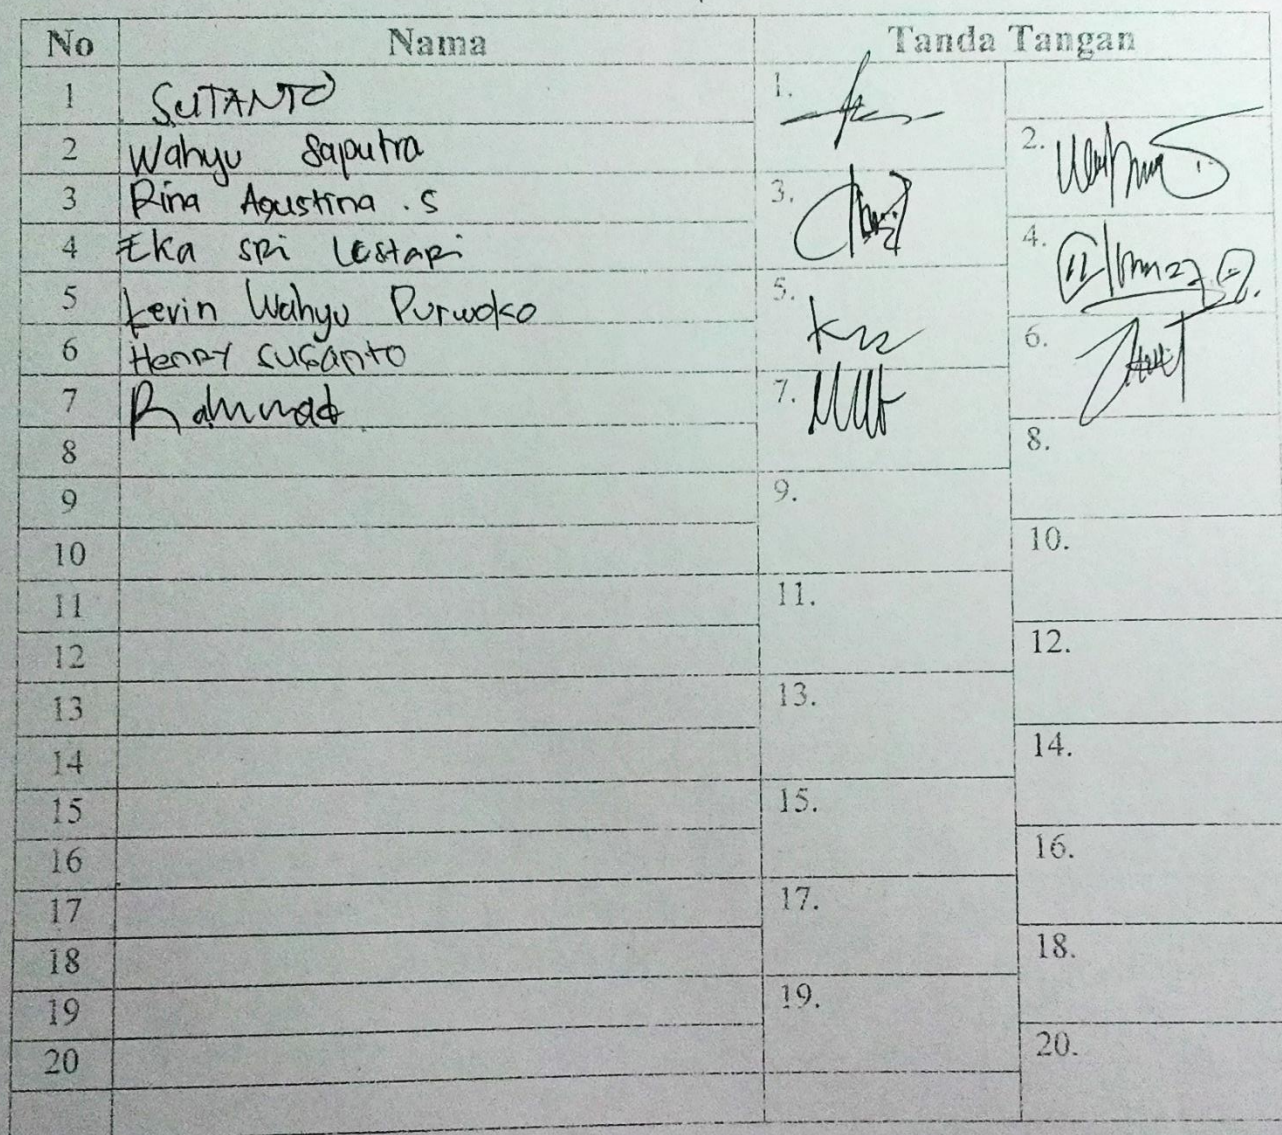 No Nama Tanda Tangan
1 SUTANTO 1.
2 Wahyu Saputra 2.
3 Rina Agustina . S 3.
4 Eka SRi LestaRi 4.
5 Kevin Wahyu Purwoko 5.
6 HenRY SUSanto 6.
7 Rahmad 7.
8 8.
9 9.
10 10.
11 11.
12 12.
13 13.
14 14.
15 15.
16 16.
17 17.
18 18.
19 19.
20 20.